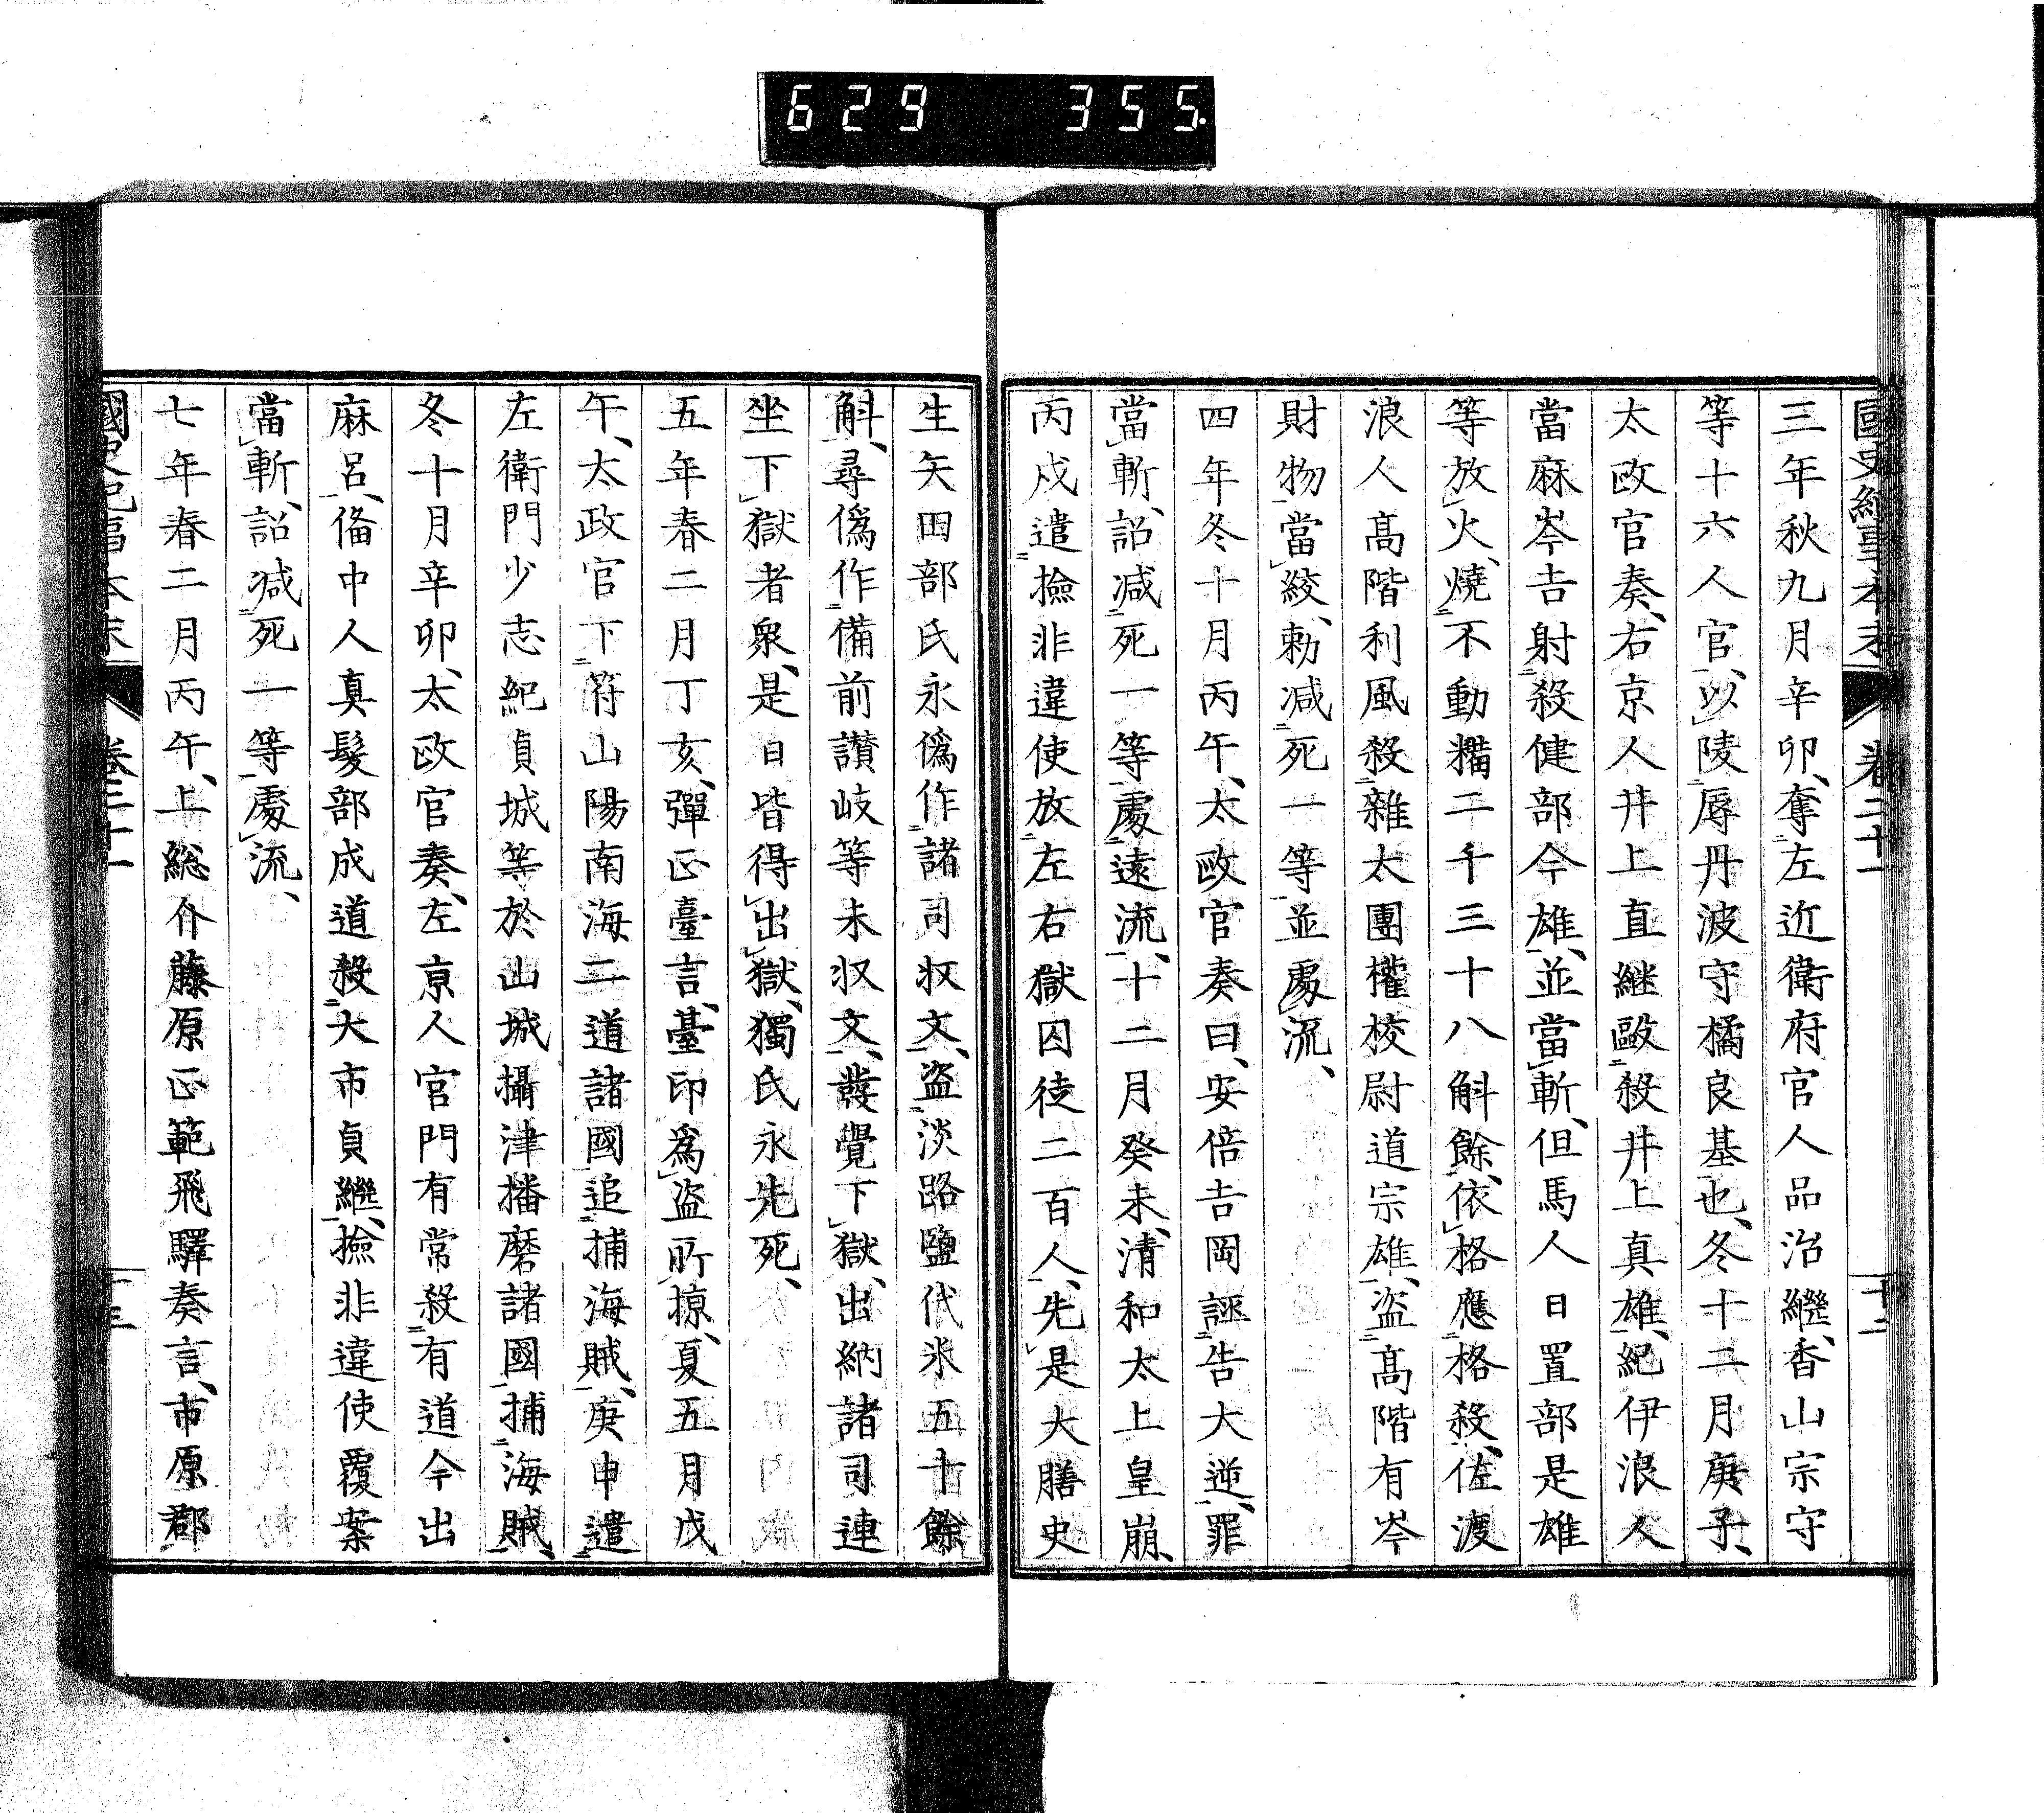 629 355.
國史紀事本末 卷二十一 十二
三年秋九月辛卯、奪左近衛府官人品治繼、香山宗守
等十六人官、以陵辱丹波守橘良基也、冬十二月庚子、
太政官奏、右京人井上直継毆殺井上真雄、紀伊浪人
當麻岑吉射殺健部今雄、並當斬、但馬人日置部是雄
等放火、燒不動糒二千三十八斛餘、依格應格殺、佐渡
浪人髙階利風殺雜太團權校尉道宗雄、盗髙階有岑
財物當絞、勅减死一等並處流、
四年冬十月丙午、太政官奏曰、安倍吉岡誣告大逆、罪
當斬、詔减死一等處遠流、十二月癸未、清和太上皇崩、
丙戍遣撿非違使放左右獄囚徒二百人、先是大膳史
生矢田部氏永僞作諸司収文、盗淡路鹽代米五十餘
斛、尋僞作備前讃岐等未収文、發覺下獄、出納諸司連
坐下獄者衆、是日皆得出獄、獨氏永先死、
五年春二月丁亥、彈正臺言、臺印爲盗所掠、夏五月戊
午、太政官下符山陽南海二道諸國追捕海賊、庚申遣
左衛門少志紀貞城等於山城攝津播磨諸國捕海賊、
冬十月辛卯、太政官奏、左京人官門有常殺有道今出
麻呂、俻中人真髮部成道殺大市貞繼、撿非違使覆案
當斬、詔减死一等處流、
七年春二月丙午、上総介藤原正範飛驛奏言、市原郡
國史紀事本末 卷二十一 十三